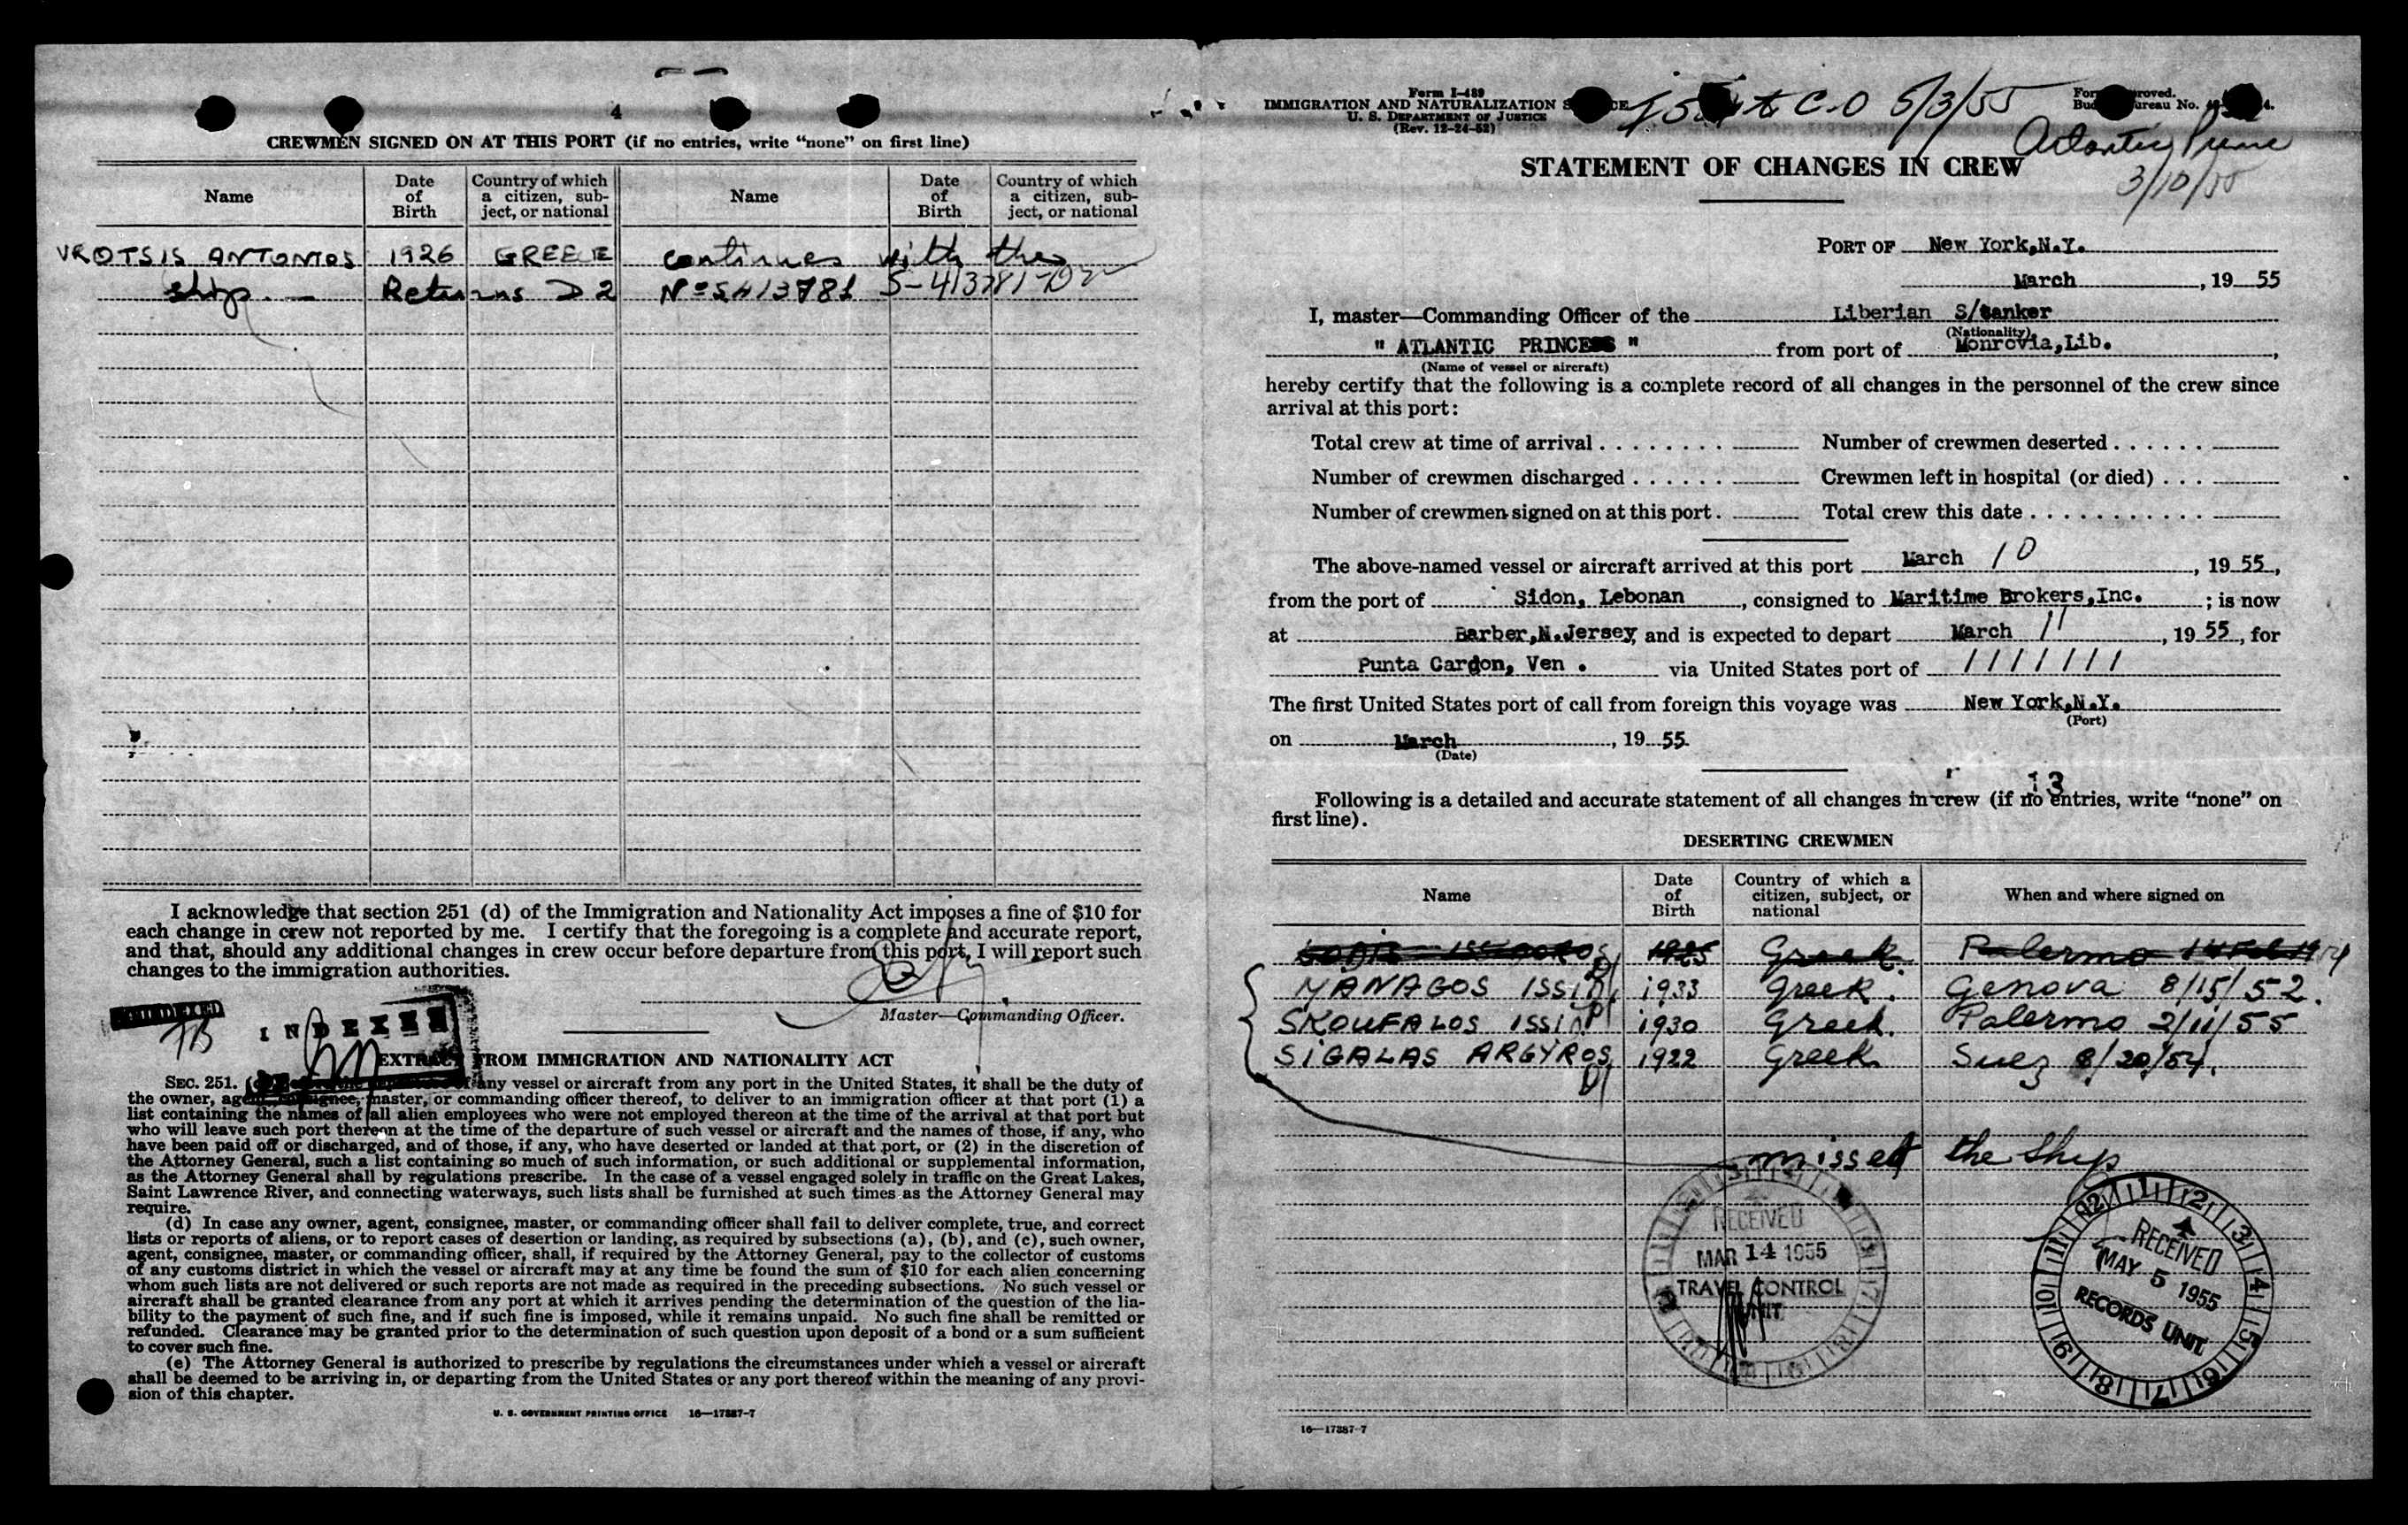 4
CREWMEN SIGNED ON AT THIS PORT (if no entries, write "none" on first line)
Name Date of Birth Country of which a citizen, subject, or national Name Date of Birth Country of which a citizen, subject, or national
VROTSIS ANTONIOS 1926 GREECE continues with the
ship. — Returns D2 Nº 5413781 S-413781-D2
I acknowledge that section 251 (d) of the Immigration and Nationality Act imposes a fine of $10 for
each change in crew not reported by me. I certify that the foregoing is a complete and accurate report,
and that, should any additional changes in crew occur before departure from this port, I will report such
changes to the immigration authorities.
Master—Commanding Officer.
INDEXED
EXTRACT FROM IMMIGRATION AND NATIONALITY ACT
SEC. 251. any vessel or aircraft from any port in the United States, it shall be the duty of
the owner, agent, consignee, master, or commanding officer thereof, to deliver to an immigration officer at that port (1) a
list containing the names of all alien employees who were not employed thereon at the time of the arrival at that port but
who will leave such port thereon at the time of the departure of such vessel or aircraft and the names of those, if any, who
have been paid off or discharged, and of those, if any, who have deserted or landed at that port, or (2) in the discretion of
the Attorney General, such a list containing so much of such information, or such additional or supplemental information,
as the Attorney General shall by regulations prescribe. In the case of a vessel engaged solely in traffic on the Great Lakes,
Saint Lawrence River, and connecting waterways, such lists shall be furnished at such times as the Attorney General may
require.
(d) In case any owner, agent, consignee, master, or commanding officer shall fail to deliver complete, true, and correct
lists or reports of aliens, or to report cases of desertion or landing, as required by subsections (a), (b), and (c), such owner,
agent, consignee, master, or commanding officer, shall, if required by the Attorney General, pay to the collector of customs
of any customs district in which the vessel or aircraft may at any time be found the sum of $10 for each alien concerning
whom such lists are not delivered or such reports are not made as required in the preceding subsections. No such vessel or
aircraft shall be granted clearance from any port at which it arrives pending the determination of the question of the lia-
bility to the payment of such fine, and if such fine is imposed, while it remains unpaid. No such fine shall be remitted or
refunded. Clearance may be granted prior to the determination of such question upon deposit of a bond or a sum sufficient
to cover such fine.
(e) The Attorney General is authorized to prescribe by regulations the circumstances under which a vessel or aircraft
shall be deemed to be arriving in, or departing from the United States or any port thereof within the meaning of any provi-
sion of this chapter.
U. S. GOVERNMENT PRINTING OFFICE 16—17387-7
Form I-489
IMMIGRATION AND NATURALIZATION SERVICE
U. S. DEPARTMENT OF JUSTICE
(Rev. 12-24-52)
C.O 5/3/55
Form approved.
Budget Bureau No.
Atlantic
3/10/55
STATEMENT OF CHANGES IN CREW
PORT OF New York,N.Y.
March , 19 55
I, master—Commanding Officer of the Liberian S/tanker
(Nationality)
" ATLANTIC PRINCESS " from port of Monrovia,Lib. ,
(Name of vessel or aircraft)
hereby certify that the following is a complete record of all changes in the personnel of the crew since
arrival at this port:
Total crew at time of arrival . . . . . . . . Number of crewmen deserted . . . . . .
Number of crewmen discharged . . . . . . Crewmen left in hospital (or died) . . .
Number of crewmen signed on at this port . Total crew this date . . . . . . . . . . .
The above-named vessel or aircraft arrived at this port March 10 , 19 55 ,
from the port of Sidon, Lebonan , consigned to Maritime Brokers,Inc. ; is now
at Barber,N.Jersey, and is expected to depart March 11 , 19 55 , for
Punta Cardon, Ven . via United States port of / / / / / / /
The first United States port of call from foreign this voyage was New York,N.Y.
(Port)
on March , 19 55
(Date)
13
Following is a detailed and accurate statement of all changes in crew (if no entries, write "none" on
first line).
DESERTING CREWMEN
Name Date of Birth Country of which a citizen, subject, or national When and where signed on
1925 Greek. Palermo
MANAGOS ISSID D1 1933 Greek. Genova 8/15/52.
SKOUFALOS ISSID D1 1930 Greek. Palermo 2/11/55
SIGALAS ARGYROS D1 1922 Greek Suez 8/20/54.
missed the ship
RECEIVED
MAR 14 1955
TRAVEL CONTROL
UNIT
RECEIVED
MAY 5 1955
RECORDS UNIT
16—17387-7